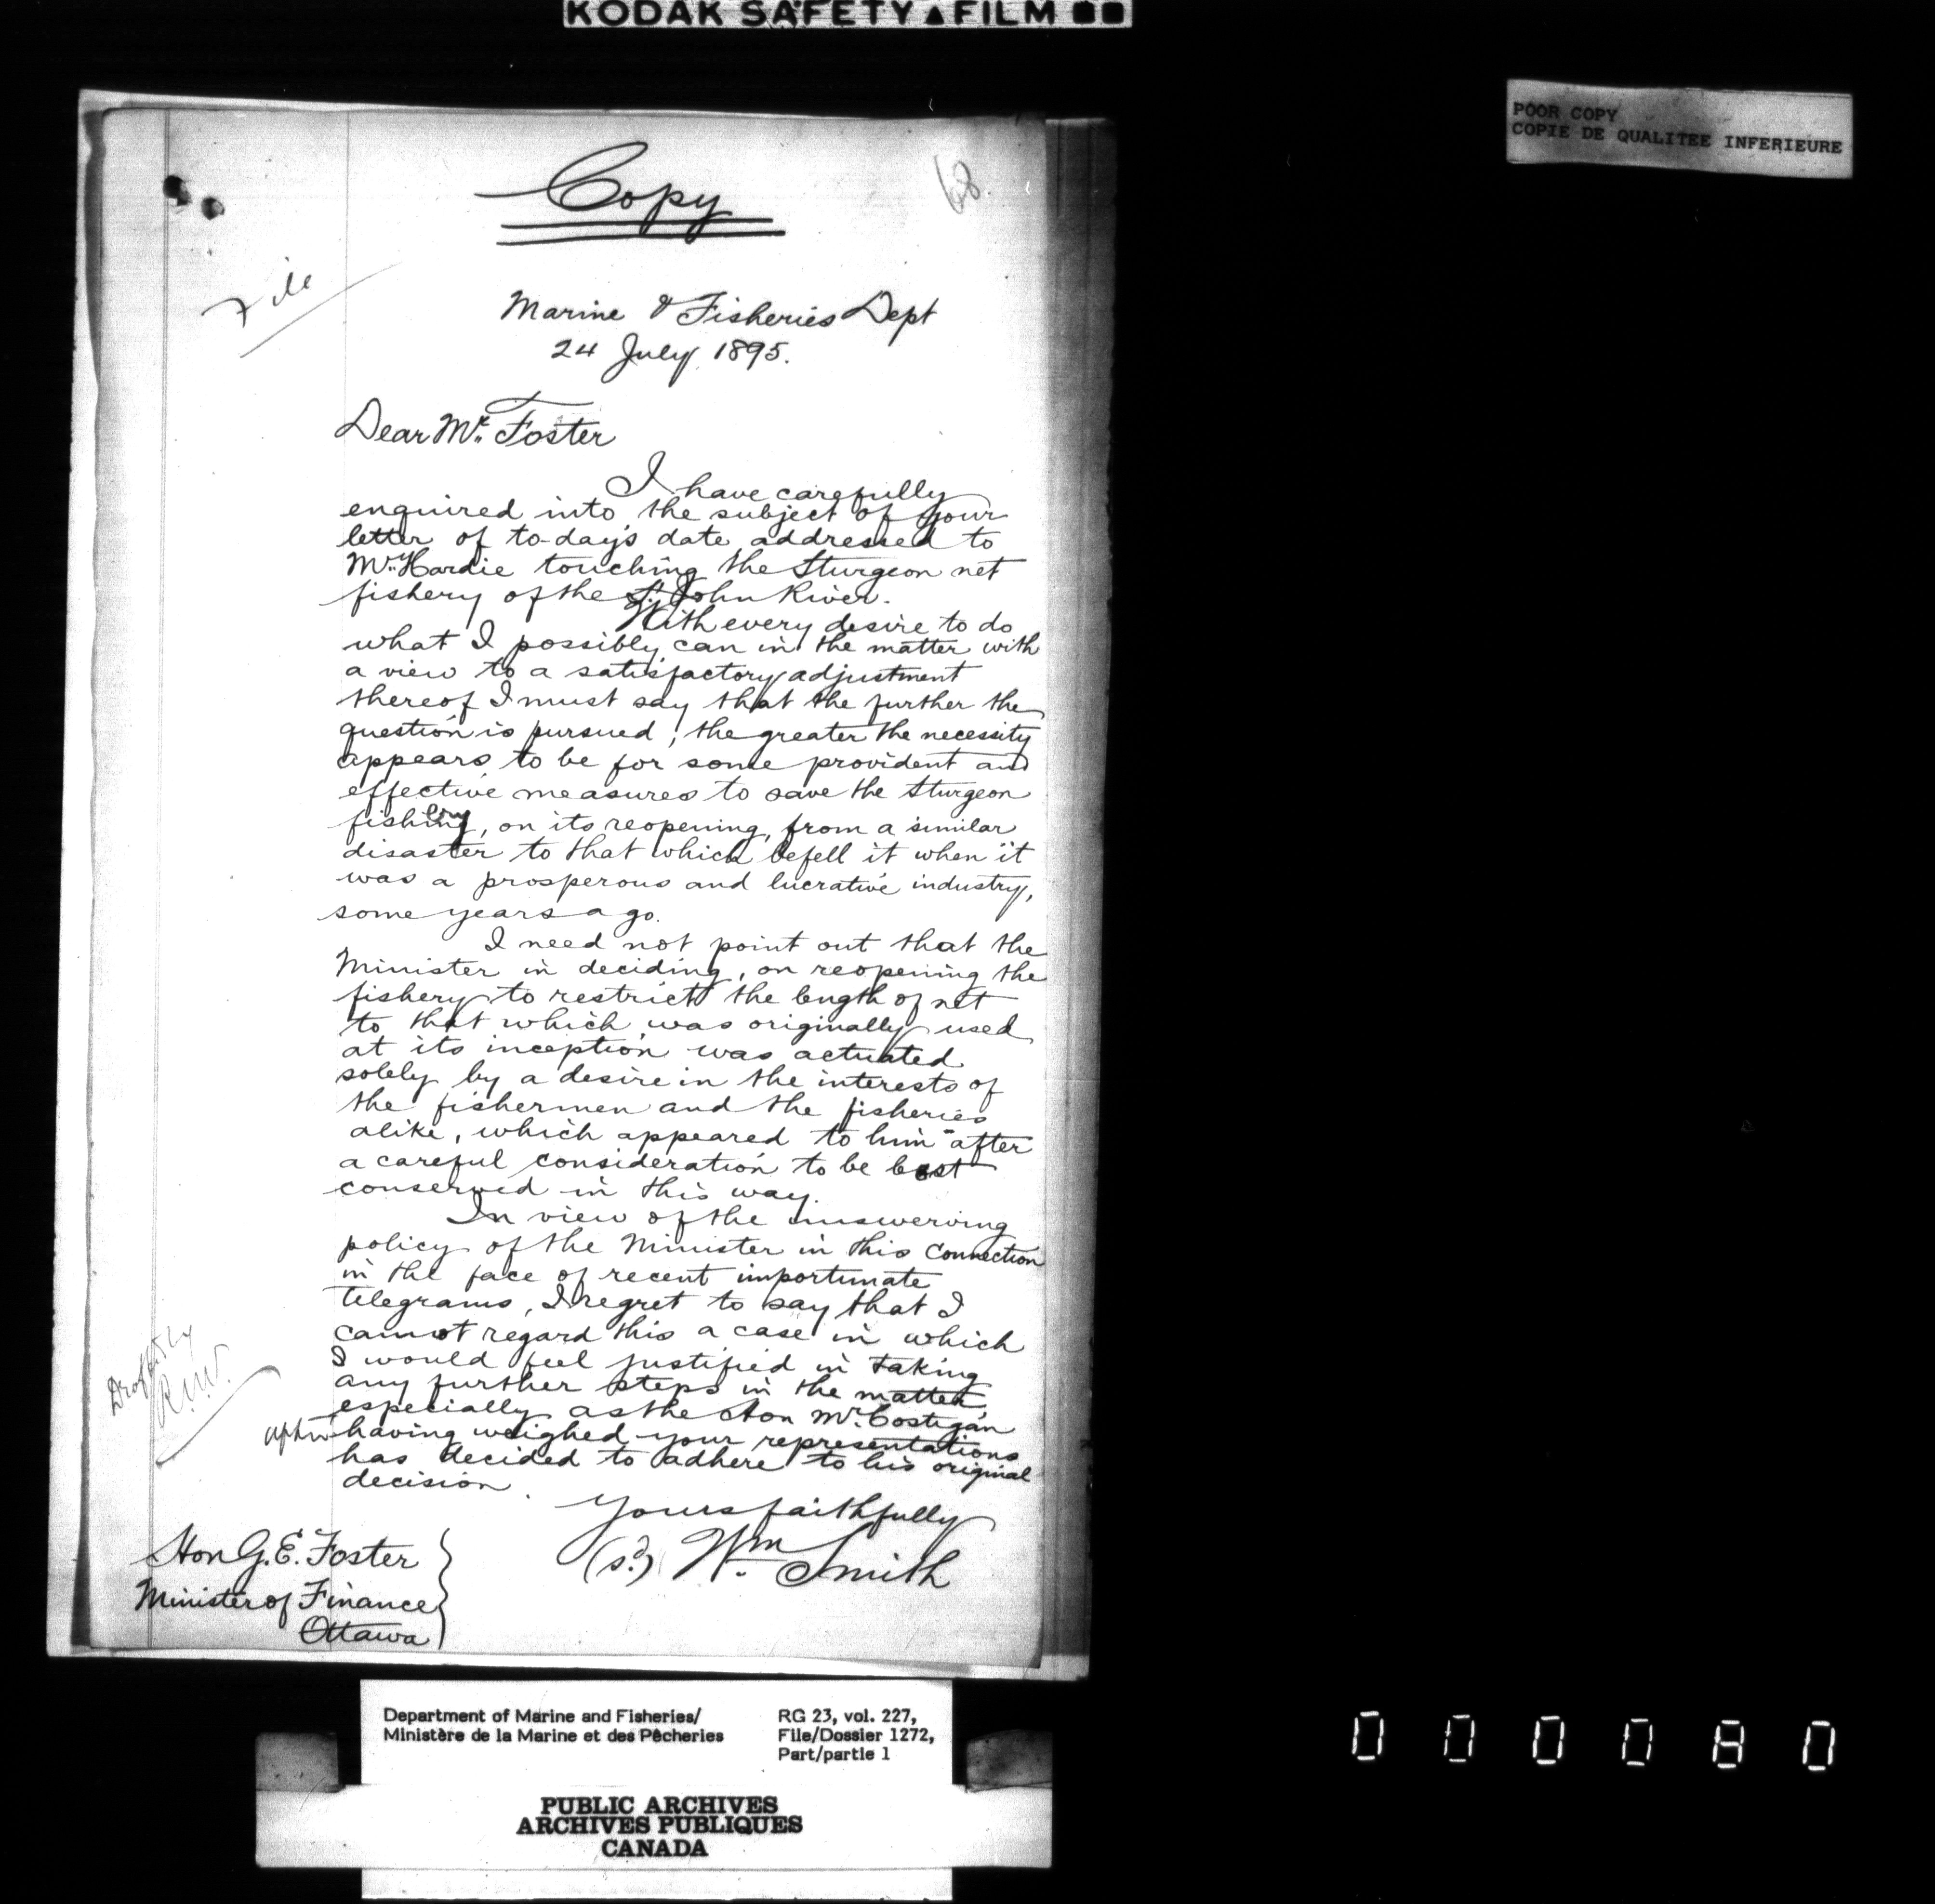 KODAK SAFETY ▲ FILM
POOR COPY
COPIE DE QUALITEE INFERIEURE
68.
Copy
File
Marine & Fisheries Dept
24 July, 1895.
Dear Mr. Foster
I have carefully
enquired into the subject of your
letter of to-day's date addressed to
Mr. Hardie touching the Sturgeon net
fishery of the St. John River.
With every desire to do
what I possibly can in the matter with
a view to a satisfactory adjustment
thereof I must say that the further the
question is pursued, the greater the necessity
appears to be for some provident and
effective measures to save the Sturgeon
fishery, on its reopening, from a similar
disaster to that which befell it when it
was a prosperous and lucrative industry,
some years ago.
I need not point out that the
Minister in deciding, on reopening the
fishery to restrict the length of net
to that which was originally used
at its inception was actuated
solely by a desire in the interests of
the fishermen and the fisheries
alike, which appeared to him after
a careful consideration to be best
conserved in this way.
In view of the unswerving
policy of the Minister in this connection
in the face of recent importunate
telegrams, I regret to say that I
cannot regard this a case in which
I would feel justified in taking
any further steps in the matter,
especially as the Hon Mr. Costigan
after having weighed your representations
has decided to adhere to his original
decision.
Drafted by
R.W.
Yours faithfully
(sd) Wm Smith
Hon G. E. Foster
Minister of Finance
Ottawa
Department of Marine and Fisheries/
Ministère de la Marine et des Pêcheries
RG 23, vol. 227,
File/Dossier 1272,
Part/partie 1
PUBLIC ARCHIVES
ARCHIVES PUBLIQUES
CANADA
000080